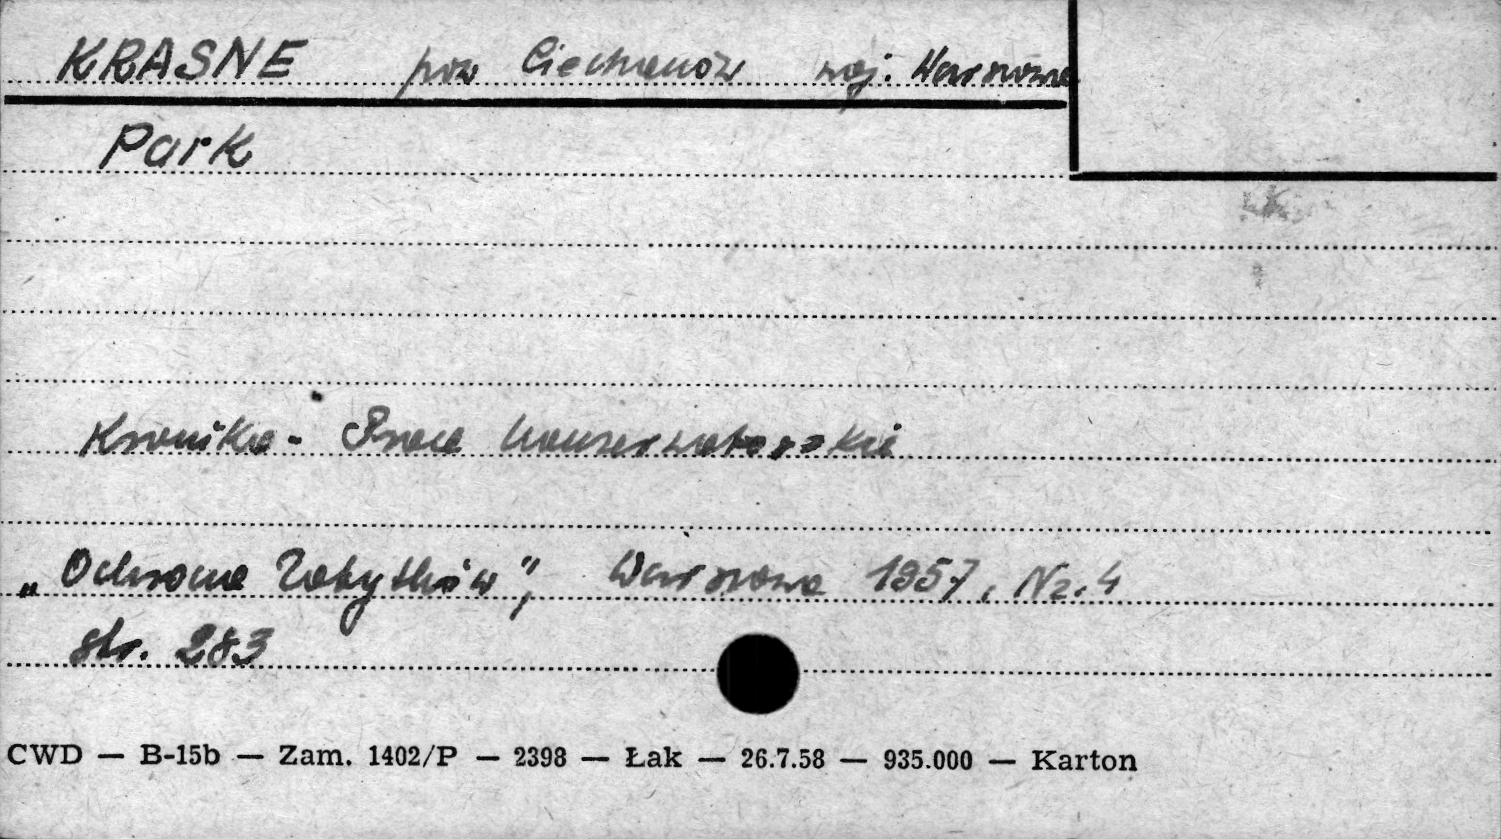 KRASNE pow Ciechanów woj. Warszawa
Park
Kronika - Prace konserwatorskie
„Ochrona Zabytków”, Warszawa 1957, Nr. 4
str. 283
CWD — B-15b — Zam. 1402/P — 2398 — Łak — 26.7.58 — 935.000 — Karton